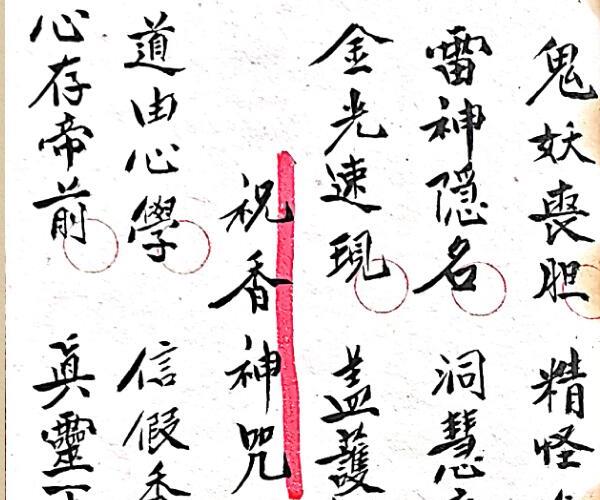 鬼妖喪胆 精怪
雷神隱名 洞慧
金光速現 盖護
祝香神咒
道由心學 信假香
心存帝前 眞靈